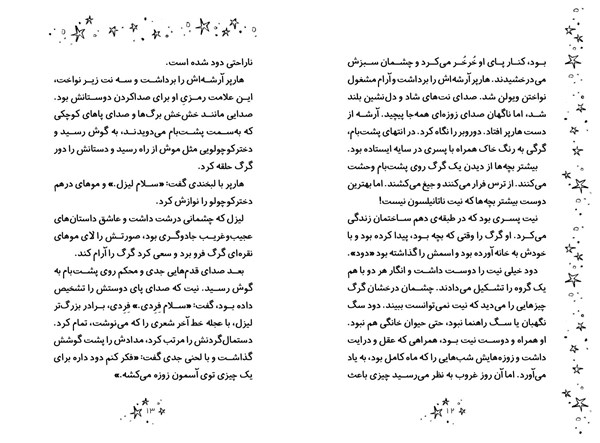 بود، کنار پای او خُرخُر می‌کرد و چشمان سبزش
می‌درخشیدند. هارپر آرشه‌اش را برداشت و آرام مشغول
نواختن ویولن شد. صدای نت‌های شاد و دل‌نشین بلند
شد، اما ناگهان صدای زوزه‌ای همه‌جا پیچید. آرشه از
دست هارپر افتاد. دوروبر را نگاه کرد. در انتهای پشت‌بام،
گرگی به رنگ خاک همراه با پسری در سایه ایستاده بود.
بیشتر بچه‌ها از دیدن یک گرگ روی پشت‌بام وحشت
می‌کنند. از ترس فرار می‌کنند و جیغ می‌کشند. اما بهترین
دوست بیشتر بچه‌ها که نیت ناتانیلسون نیست!
نیت پسری بود که در طبقه‌ی دهم ساختمان زندگی
می‌کرد. او گرگ را وقتی که بچه بود، پیدا کرده بود و با
خودش به خانه آورده بود و اسمش را گذاشته بود «دود».
دود خیلی نیت را دوست داشت و انگار هر دو با هم
یک گروه را تشکیل می‌دادند. چشمان درخشان گرگ
چیزهایی را می‌دید که نیت نمی‌توانست ببیند. دود سگ
نگهبان یا سگ راهنما نبود، حتی حیوان خانگی هم نبود.
او همراه و دوست نیت بود، همراهی که عقل و درایت
داشت و زوزه‌هایش شب‌هایی را که ماه کامل بود، به یاد
می‌آورد. اما آن روز غروب به نظر می‌رسید چیزی باعث
۱۲
ناراحتی دود شده است.
هارپر آرشه‌اش را برداشت و سه نت زیر نواخت،
این علامت رمزیِ او برای صداکردن دوستانش بود.
صدایی مانند خش‌خش برگ‌ها و صدای پاهای کوچکی
که به‌سمت پشت‌بام می‌دویدند، به گوش رسید و
دخترکوچولویی مثل موش از راه رسید و دستانش را دور
گرگ حلقه کرد.
هارپر با لبخندی گفت: «سلام لیزل.» و موهای درهم
دخترکوچولو را نوازش کرد.
لیزل که چشمانی درشت داشت و عاشق داستان‌های
عجیب‌وغریب جادوگری بود، صورتش را لای موهای
نقره‌ای گرگ فرو برد و سعی کرد گرگ را آرام کند.
بعد صدای قدم‌هایی جدی و محکم روی پشت‌بام به
گوش رسید. نیت که صدای پای دوستش را تشخیص
داده بود، گفت: «سلام فِردی.» فِردی، برادر بزرگ‌تر
لیزل، با عجله خط آخر شعری را که می‌نوشت، تمام کرد.
دستمال‌گردنش را مرتب کرد، مدادش را پشت گوشش
گذاشت و با لحنی جدی گفت: «فکر کنم دود داره برای
یک چیزی توی آسمون زوزه می‌کشه.»
۱۳